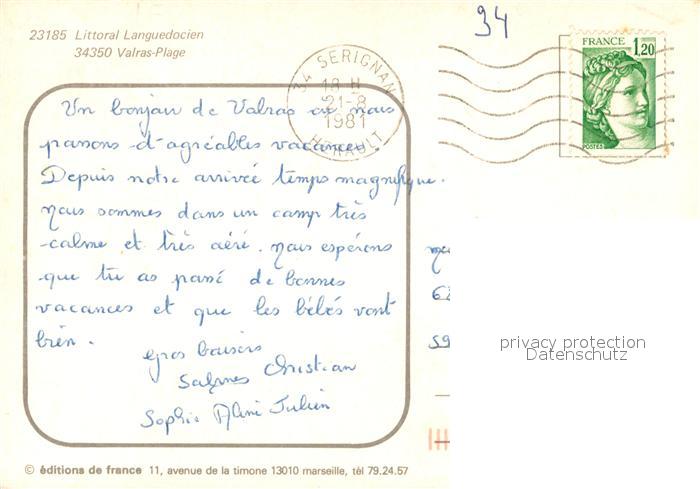 34
23185 Littoral Languedocien
34350 Valras-Plage
FRANCE
1,20
POSTES
34 SERIGNAN
18 H
21-8
1981
HERAULT
Un bonjour de Valras où nous
passons d'agréables vacances
Depuis notre arrivée temps magnifique.
nous sommes dans un camp très
calme et très aéré. nous espérons
que tu as passé de bonnes
vacances et que les bébés vont
bien.
gros baisers
Christian
Sophie Aline Julien
62
59
privacy protection
Datenschutz
© éditions de france 11, avenue de la timone 13010 marseille, tèl 79.24.57